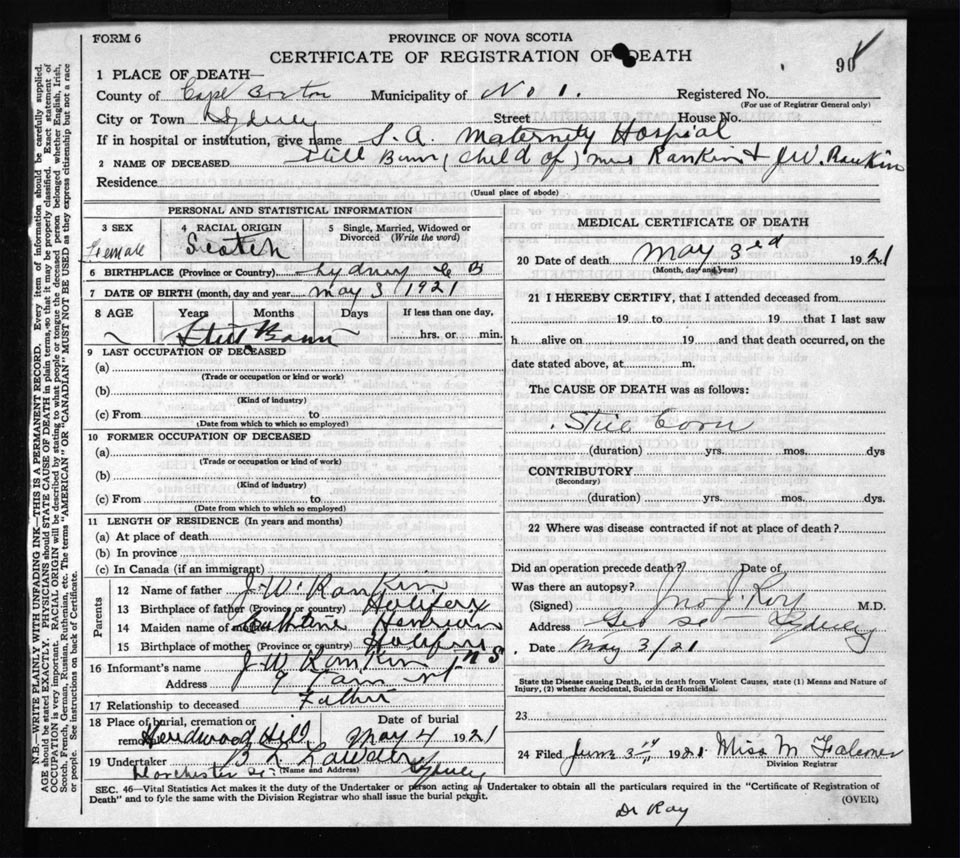 FORM 6
PROVINCE OF NOVA SCOTIA
CERTIFICATE OF REGISTRATION OF DEATH
90
1 PLACE OF DEATH—
County of Cape Breton Municipality of No 1. Registered No.
(For use of Registrar General only)
City or Town Sydney Street House No.
If in hospital or institution, give name S.A. Maternity Hospital
2 NAME OF DECEASED Still Born (child of) Mrs Rankin & J.W. Rankin
Residence
(Usual place of abode)
PERSONAL AND STATISTICAL INFORMATION
3 SEX 4 RACIAL ORIGIN 5 Single, Married, Widowed or Divorced (Write the word)
Female Scotch
6 BIRTHPLACE (Province or Country) Sydney C B
7 DATE OF BIRTH (month, day and year) May 3 1921
8 AGE Years Months Days If less than one day,
Still Born hrs. or min.
9 LAST OCCUPATION OF DECEASED
(a)
(Trade or occupation or kind or work)
(b)
(Kind of industry)
(c) From to
(Date from which to which so employed)
10 FORMER OCCUPATION OF DECEASED
(a)
(Trade or occupation or kind of work)
(b)
(Kind of industry)
(c) From to
(Date from which to which so employed)
11 LENGTH OF RESIDENCE (In years and months)
(a) At place of death
(b) In province
(c) In Canada (if an immigrant)
Parents
12 Name of father J. W. Rankin
13 Birthplace of father (Province or country) Halifax
14 Maiden name of mother
15 Birthplace of mother (Province or country) Halifax N S
16 Informant's name J W Rankin
Address 9
17 Relationship to deceased Father
18 Place of burial, cremation or removal Hardwood Hill Date of burial May 4 1921
19 Undertaker
(Name and Address)
Dorchester St. Sydney
MEDICAL CERTIFICATE OF DEATH
20 Date of death May 3rd 1921
(Month, day and year)
21 I HEREBY CERTIFY, that I attended deceased from
19 to 19 that I last saw
h alive on 19 and that death occurred, on the
date stated above, at m.
The CAUSE OF DEATH was as follows:
Still Born
(duration) yrs. mos. dys
CONTRIBUTORY
(Secondary)
(duration) yrs. mos. dys.
22 Where was disease contracted if not at place of death?
Did an operation precede death? Date of
Was there an autopsy?
(Signed) Jno J. Roy M.D.
Address Geo St – Sydney
Date May 3/21
State the Disease causing Death, or in death from Violent Causes, state (1) Means and Nature of
Injury, (2) whether Accidental, Suicidal or Homicidal.
23
24 Filed June 3rd 1921 Miss M Falconer
Division Registrar
SEC. 46—Vital Statistics Act makes it the duty of the Undertaker or person acting as Undertaker to obtain all the particulars required in the "Certificate of Registration of
Death" and to fyle the same with the Division Registrar who shall issue the burial permit.
(OVER)
Dr Roy
N.B.—WRITE PLAINLY WITH UNFADING INK—THIS IS A PERMANENT RECORD. Every item of information should be carefully supplied.
AGE should be stated EXACTLY. PHYSICIANS should STATE CAUSE OF DEATH in plain terms, so that it may be properly classified. Exact statement of
OCCUPATION is very important. RACIAL ORIGIN will be described by stating to what people or tongue the deceased person belonged whether English, Irish,
Scotch, French, German, Russian, Ruthenian, etc. The terms "AMERICAN" OR "CANADIAN" MUST NOT BE USED as they express citizenship but not a race
or people. See instructions on back of Certificate.